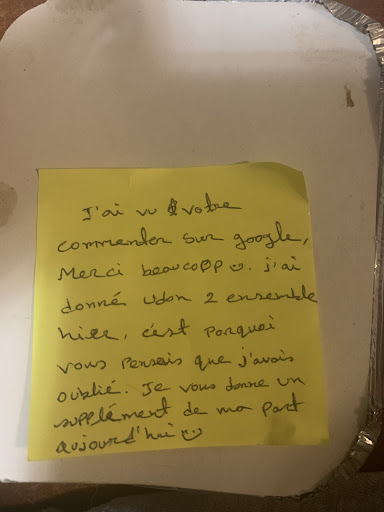 J'ai vu votre
commenter sur google,
Merci beaucoop ☺. j'ai
donné udon 2 ensemble
hier, c'est porquoi
vous pensais que j'avais
oublié. Je vous donne un
supplément de ma part
aujourd'hui ☺